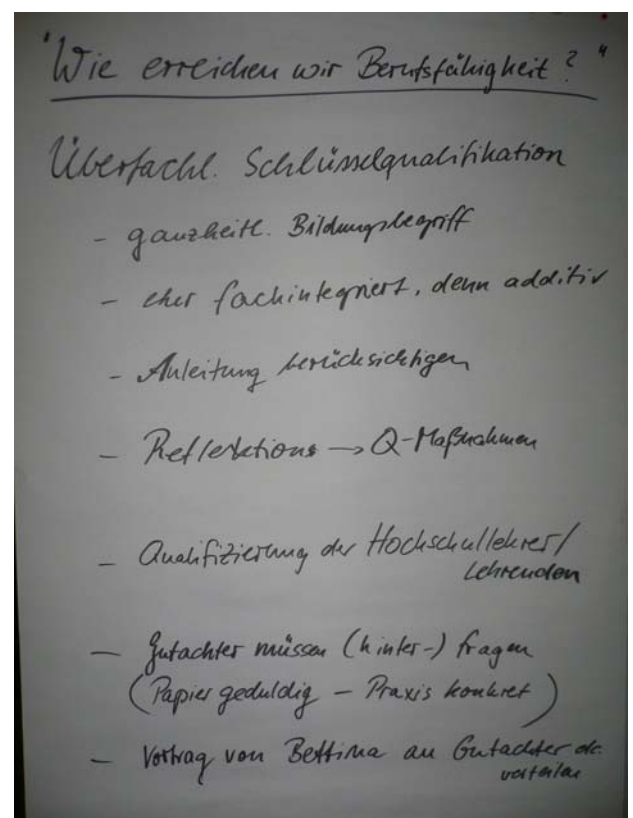 "Wie erreichen wir Berufsfähigkeit?"
Überfachl. Schlüsselqualifikation
- ganzheitl. Bildungsbegriff
- eher fachintegriert, denn additiv
- Anleitung berücksichtigen
- Reflektions → Q-Maßnahmen
- Qualifizierung der Hochschullehrer/
Lehrenden
- Gutachter müssen (hinter-) fragen
(Papier geduldig - Praxis konkret)
- Vortrag von Bettina an Gutachter
verteilen